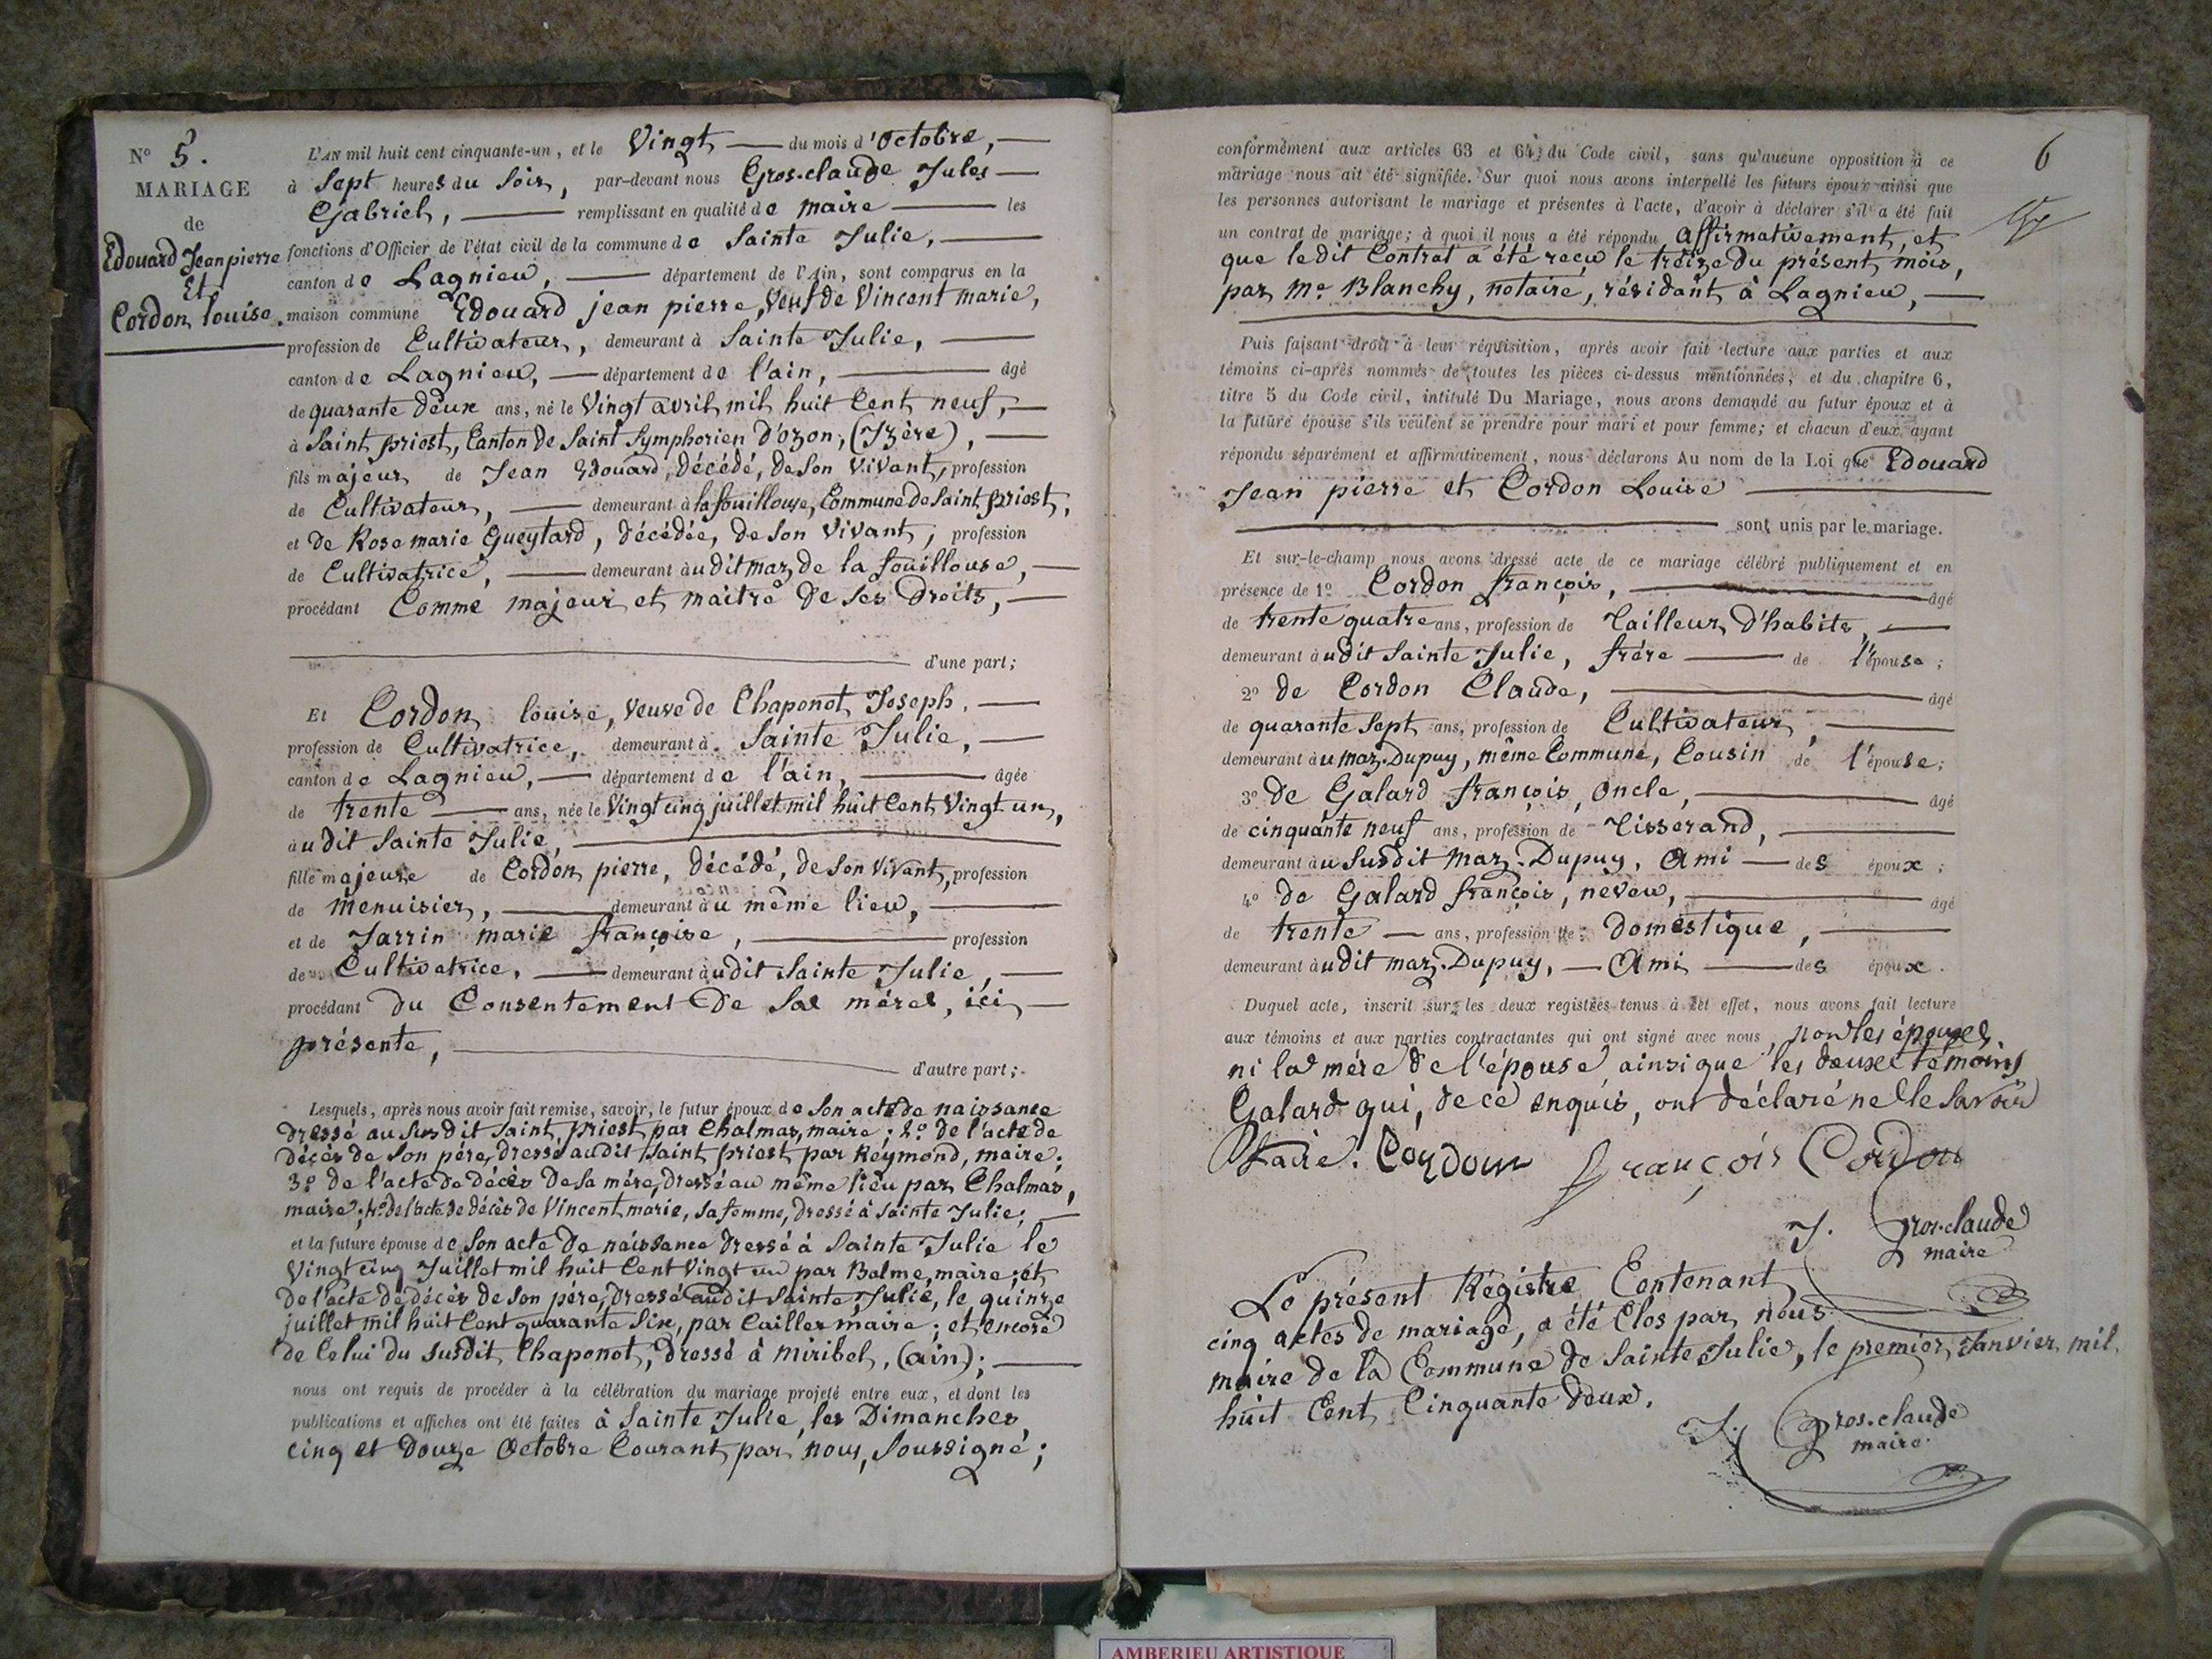 N° 5.
MARIAGE
de
Edouard Jean pierre
Et
Cordon louise.
L'AN mil huit cent cinquante-un, et le Vingt du mois d'Octobre,
à Sept heures du Soir, par-devant nous Gros-claude Jules
Gabriel, remplissant en qualité de maire les
fonctions d'Officier de l'état civil de la commune de Sainte Julie,
canton de Lagnieu, département de l'Ain, sont comparus en la
maison commune Edouard jean pierre, Veuf de Vincent marie,
profession de Cultivateur, demeurant à Sainte Julie,
canton de Lagnieu, département de l'ain, âgé
de quarante deux ans, né le Vingt avril mil huit Cent neuf,
à Saint priest, Canton de Saint Symphorien d'ozon, (Izère),
fils majeur de Jean Edouard, décédé, de Son Vivant, profession
de Cultivateur, demeurant à la fouillouse, Commune de Saint priest,
et de Rose marie Gueytard, décédée, de Son Vivant, profession
de Cultivatrice, demeurant audit maz de la fouillouse,
procédant Comme majeur et maître de Ses Droits,
d'une part;
Et Cordon louise, Veuve de Chaponot Joseph,
profession de Cultivatrice, demeurant à Sainte Julie,
canton de Lagnieu, département de l'ain, âgée
de trente ans, née le Vingt cinq juillet mil huit Cent Vingt un,
audit Sainte Julie,
fille majeure de Cordon pierre, décédé, de Son Vivant, profession
de menuisier, demeurant au même lieu,
et de Jarrin marie françoise, profession
de Cultivatrice, demeurant audit Sainte Julie,
procédant du Consentement de Sa mére, ici
présente,
d'autre part;
Lesquels, après nous avoir fait remise, savoir, le futur époux de Son acte de naissance
dressé au Susdit Saint priest par Chalmas, maire; 2° de l'acte de
décès de Son pére, dressé audit Saint priest par Reymond, maire;
3° de l'acte de décès de Sa mére, dressé au même lieu par Chalmas,
maire; 4° de l'acte de décès de Vincent marie, Sa femme, dressé à Sainte Julie;
et la future épouse de Son acte de naissance dressé à Sainte Julie le
Vingt cinq Juillet mil huit Cent Vingt un par Balme, maire; et
de l'acte de décès de Son pére, dressé audit Sainte Julie, le quinze
juillet mil huit Cent quarante Six, par Cailler maire; et encore
de Celui du Susdit Chaponot, dressé à miribel, (ain);
nous ont requis de procéder à la célébration du mariage projeté entre eux, et dont les
publications et affiches ont été faites à Sainte Julie, les Dimanches
cinq et douze Octobre Courant, par nous, Soussigné;
6
conformément aux articles 63 et 64 du Code civil, sans qu'aucune opposition à ce
mariage nous ait été signifiée. Sur quoi nous avons interpellé les futurs époux ainsi que
les personnes autorisant le mariage et présentes à l'acte, d'avoir à déclarer s'il a été fait
un contrat de mariage; à quoi il nous a été répondu affirmativement, et
que le dit Contrat a été reçu le treize du présent mois,
par Me Blanchy, notaire, résidant à Lagnieu,
Puis faisant droit à leur réquisition, après avoir fait lecture aux parties et aux
témoins ci-après nommés de toutes les pièces ci-dessus mentionnées, et du chapitre 6,
titre 5 du Code civil, intitulé Du Mariage, nous avons demandé au futur époux et à
la future épouse s'ils veulent se prendre pour mari et pour femme; et chacun d'eux ayant
répondu séparément et affirmativement, nous déclarons Au nom de la Loi que Edouard
Jean pierre et Cordon Louise
sont unis par le mariage.
Et sur-le-champ nous avons dressé acte de ce mariage célébré publiquement et en
présence de 1° Cordon françois, âgé
de trente quatre ans, profession de Tailleur d'habits,
demeurant audit Sainte Julie, frére de l'épouse;
2° de Cordon Claude, âgé
de quarante Sept ans, profession de Cultivateur,
demeurant au maz-Dupuy, même Commune, Cousin de l'épouse;
3° de Galard françois, oncle, âgé
de cinquante neuf ans, profession de Tisserand,
demeurant au Susdit maz-Dupuy, Ami des époux;
4° de Galard françois, neveu, âgé
de trente ans, profession de domestique,
demeurant audit maz-Dupuy, Ami des époux.
Duquel acte, inscrit sur les deux registres tenus à cet effet, nous avons fait lecture
aux témoins et aux parties contractantes qui ont signé avec nous, non les époux,
ni la mére de l'épouse, ainsi que les deux témoins
Galard qui, de ce enquis, ont déclaré ne le Savoir
faire. Cordon françois Cordon
J. Gros-claude
maire
Le présent Régistre Contenant
cinq actes de mariage, a été Clos par nous
maire de la Commune de Sainte Julie, le premier Janvier mil
huit Cent Cinquante deux.
J. Gros-claude
maire.
AMBERIEU ARTISTIQUE